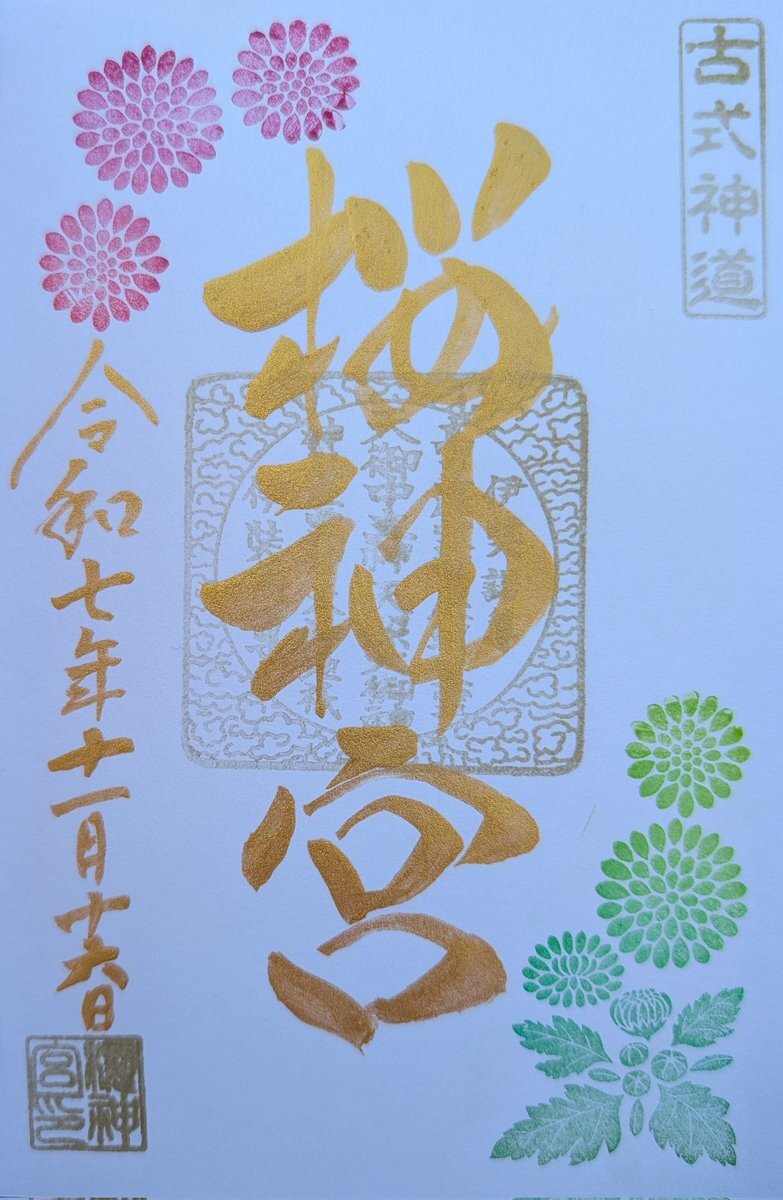 古式神道
桜神宮
令和七年十一月廿六日
櫻神宮印